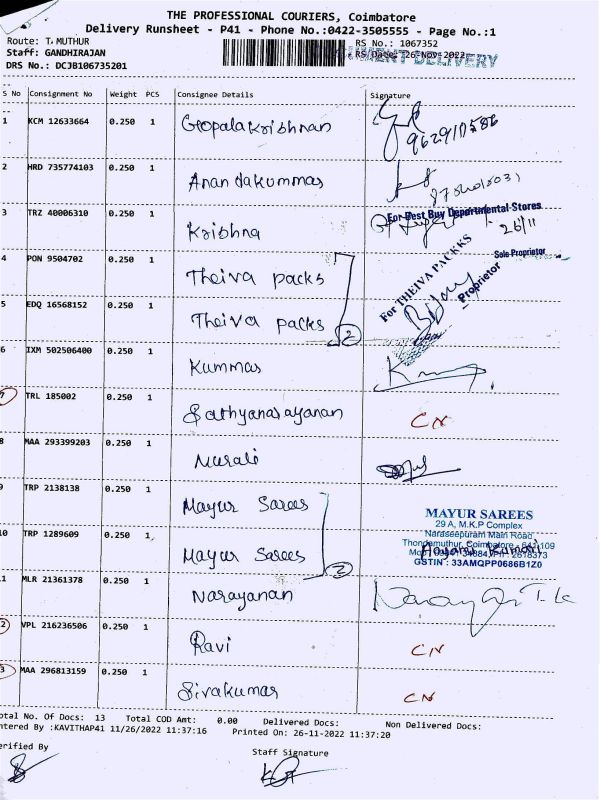 THE PROFESSIONAL COURIERS, Coimbatore
Delivery Runsheet - P41 - Phone No.:0422-3505555 - Page No.:1
Route: T. MUTHUR
RS No.: 1067352
Staff: GANDHIRAJAN
RS Date: 26-Nov-2022
DELIVERY
DRS No.: DCJB106735201
S No Consignment No Weight PCS Consignee Details Signature
1 KCM 12633664 0.250 1 Gopalakrishnan
2 HRD 735774103 0.250 1 Anandakummar
3 TRZ 40006310 0.250 1 Krishna For Best Buy Departmental Stores
26/11
Sole Proprietor
4 PON 9504702 0.250 1 Theiva packs For THEIVA PACKKS
Proprietor
5 EDQ 16568152 0.250 1 Theiva packs 2
6 IXM 502506400 0.250 1 Kummar
7 TRL 185002 0.250 1 Sathyanarayanan CN
8 MAA 293399203 0.250 1 Murali
9 TRP 2138138 0.250 1 Mayur Sarees
MAYUR SAREES
29 A, M.K.P Complex
Naraseepuram Main Road
10 TRP 1289609 0.250 1 Mayur Sarees 2
Thondamuthur, Coimbatore - 641 109
GSTIN : 33AMQPP0686B1Z0
11 MLR 21361378 0.250 1 Narayanan
2 VPL 216236506 0.250 1 Ravi CN
3 MAA 296813159 0.250 1 Sivakumar CN
otal No. Of Docs: 13 Total COD Amt: 0.00 Delivered Docs: Non Delivered Docs:
ntered By :KAVITHAP41 11/26/2022 11:37:16 Printed On: 26-11-2022 11:37:20
erified By Staff Signature